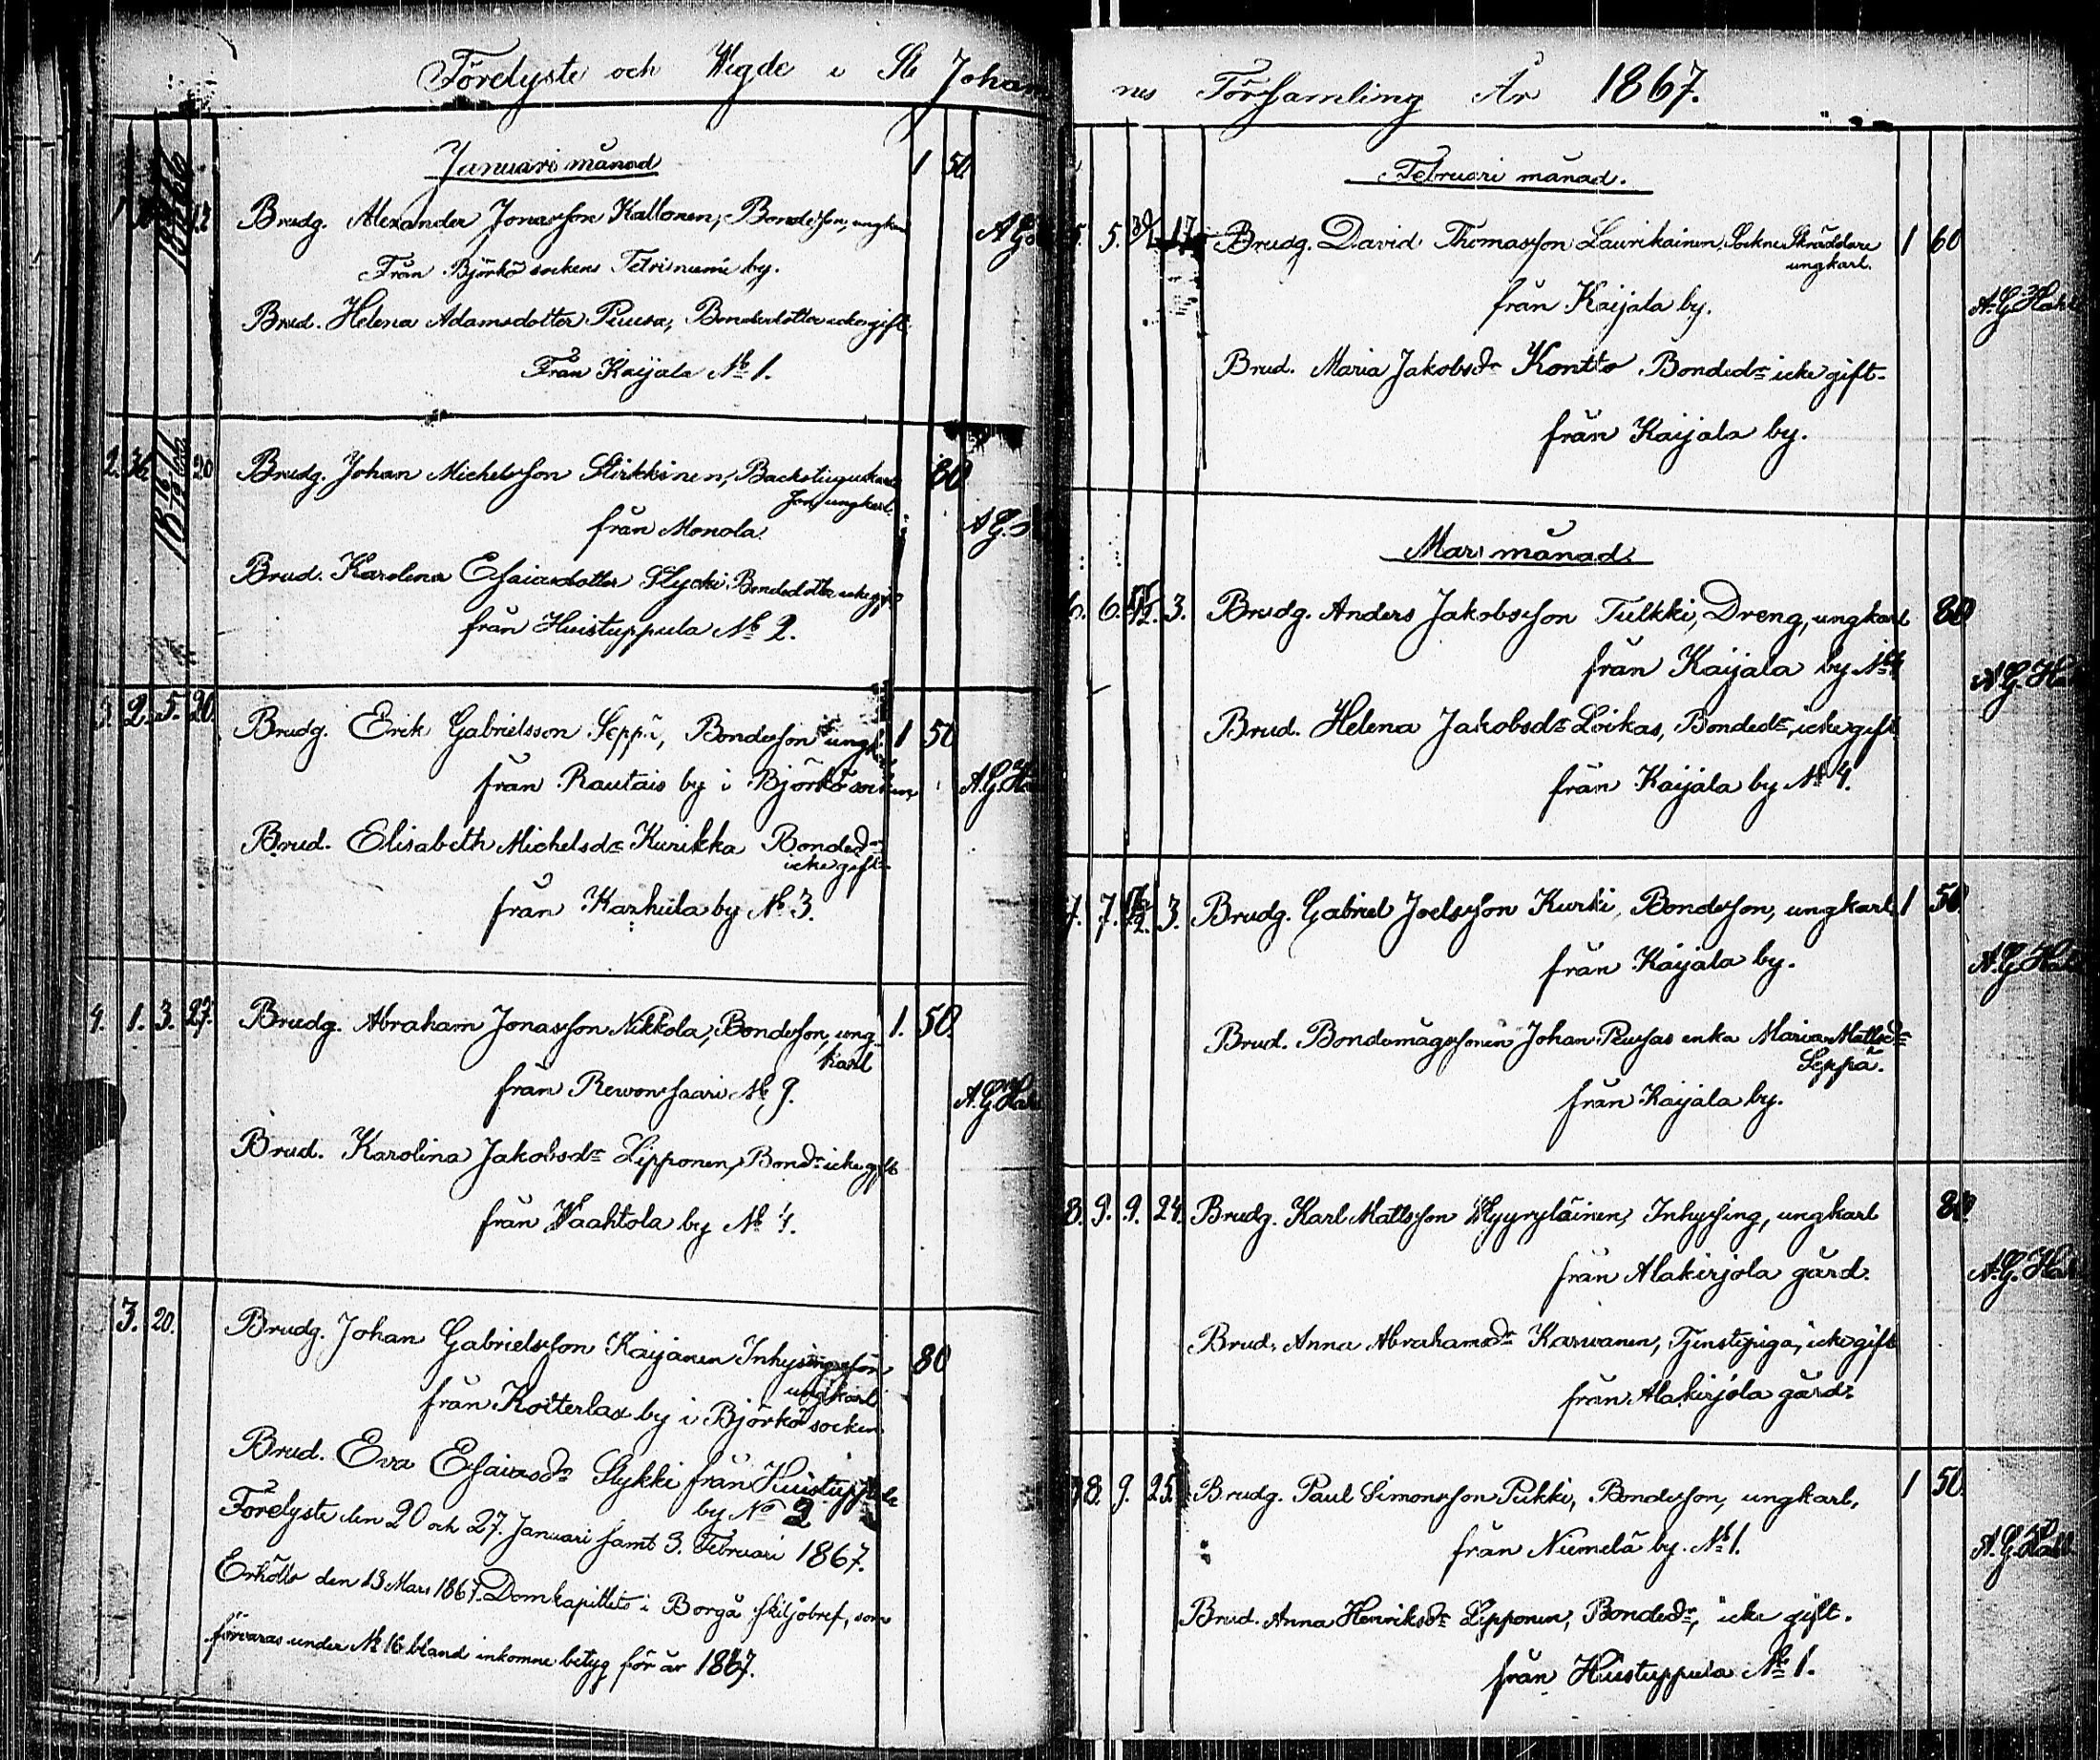 Förelyste och Wigde i St Johan
Januari månad
1 50
Brudg. Alexander Jonasson Kallonen, Bondeson, ungkarl
A G
Från Björkö sockens Petriniemi by.
Brud. Helena Adamsdotter Puusa, Bondedotter icke gift
Från Kaijala No 1.
2. 36. 18 16/12 66 20 Brudg. Johan Michelsson Stirkkinen, Backstugukarl
son, ungkarl. 80
från Monola.
A G.
Brud. Karolina Esaiasdotter Stycki, Bondedotter icke gift
från Huistuppula No 2.
3. 2. 5. 20. Brudg. Erik Gabrielsson Seppä, Bondesson ungk. 1 50
från Rautais by i Björkö socken
A. G. Ha
Brud. Elisabeth Michelsdr Kurikka Bondedr
icke gift
från Karhula by No 3.
4. 1. 3. 27. Brudg. Abraham Jonasson Nikkola, Bondeson, ung- 1. 50.
karl
från Rewonsaari No 9.
A. G. Hahl
Brud. Karolina Jakobsdr Lipponen, Bondr icke gift
från Waahtola by No 4.
3. 20. Brudg. Johan Gabrielsson Kaijanen Inhysingsson, 80
ungkarl
från Koiterlax by i Björkö socken
Brud. Eva Esaiasdr Stykki från Huistuppula
by No 2
Förelyste den 20 och 27. Januari samt 3. Februari 1867.
Erhöllo den 13 Mars 1867. Domkapitlets i Borgå skiljobref, som
förvaras under No 16 bland inkomne betyg för år 1867.
nes Församling År 1867.
Februari månad.
5. 5. 17. Brudg. David Thomasson Laurikainen, Sockne Skräddare 1 60
ungkarl.
från Kaijala by.
A. G. Hahl
Brud. Maria Jakobsdr Kontto Bondedr icke gift.
från Kaijala by.
Mars månad.
6. 6. 3. Brudg. Anders Jakobsson Tulkki, Dreng, ungkarl 80
från Kaijala by No 4
A. G. Ha
Brud. Helena Jakobsdr Loikas, Bondedr, icke gift
från Kaijala by No 4.
7. 7. 3. Brudg. Gabriel Joelsson Kurki, Bondeson, ungkarl. 1 50
från Kaijala by.
A. G. Hahl
Brud. Bondemågssonen Johan Peussas enka Maria Mattsdr
Seppä.
från Kaijala by.
8. 9. 9. 24. Brudg. Karl Mattsson Hyyryläinen, Inhysing, ungkarl 80
från Alakirjola gård.
A. G. Hahl
Brud. Anna Abrahamsdr Karwanen, Tjenstepiga, icke gift
från Alakirjola gård.
8. 9. 25. Brudg. Paul Simonsson Pukki, Bondeson, ungkarl, 1 50
från Niemelä by. No 1.
A. G. Hahl
Brud. Anna Henriksdr Lipponen, Bondedr, icke gift.
från Huistuppula No 1.